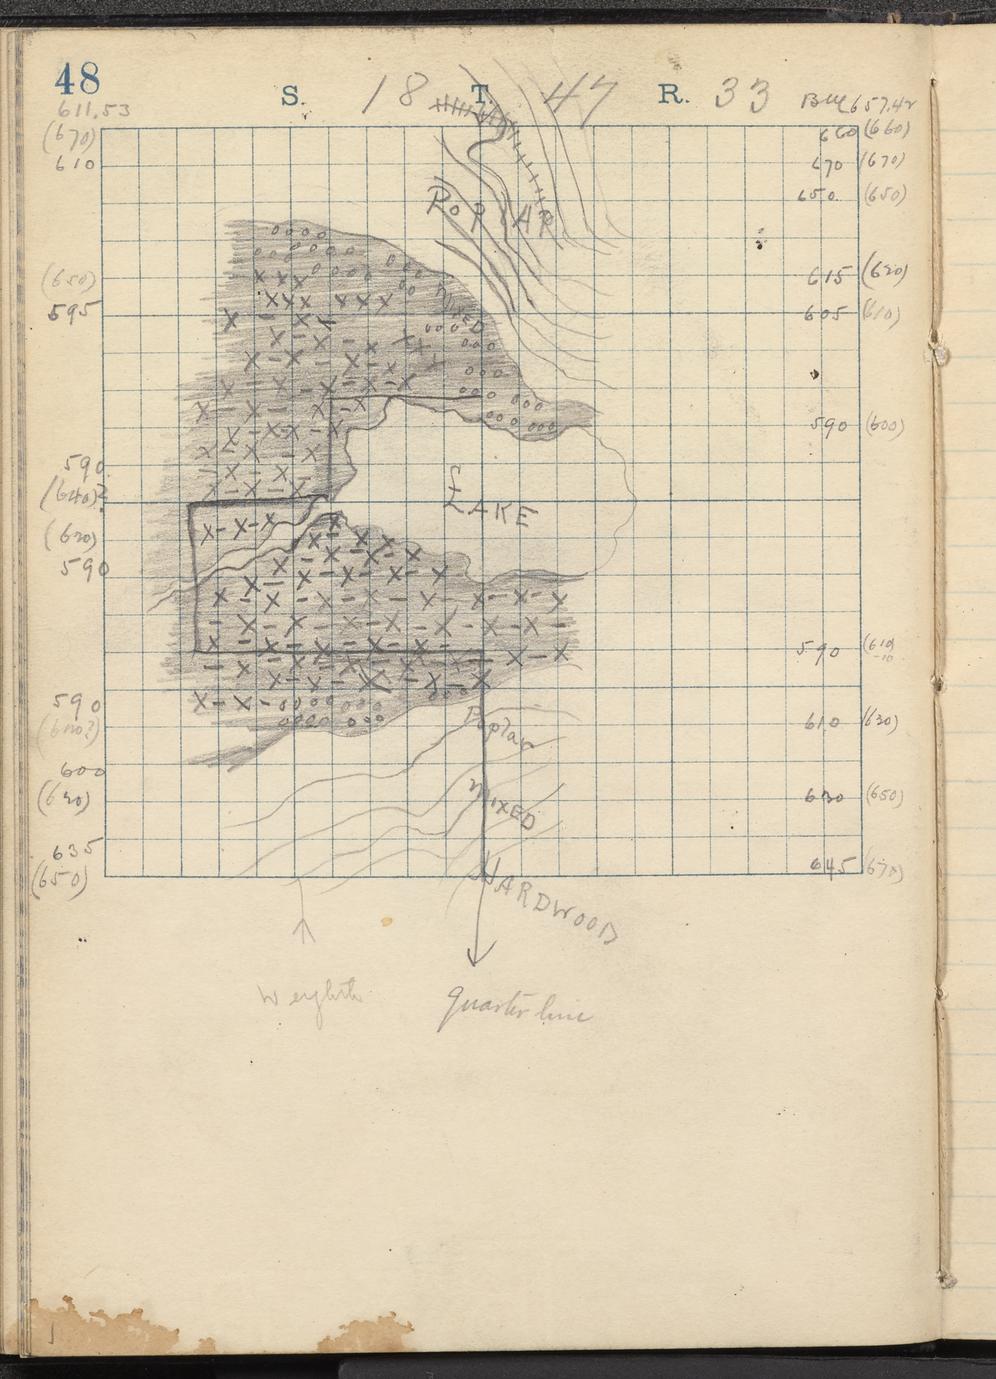 48
S. 18 T. 47 R. 33
611.53
(670)
610
(650)
595
590
(640)?
(620)
590
590
600
(620)
635
(650)
BM 657.42
660 (660)
670 (670)
650 (650)
615 (620)
605 (610)
590 (600)
590 (610
-10
610 (630)
630 (650)
645 (670)
POPLAR
MIXED
LAKE
Poplar
MIXED
HARDWOOD
Quarter line